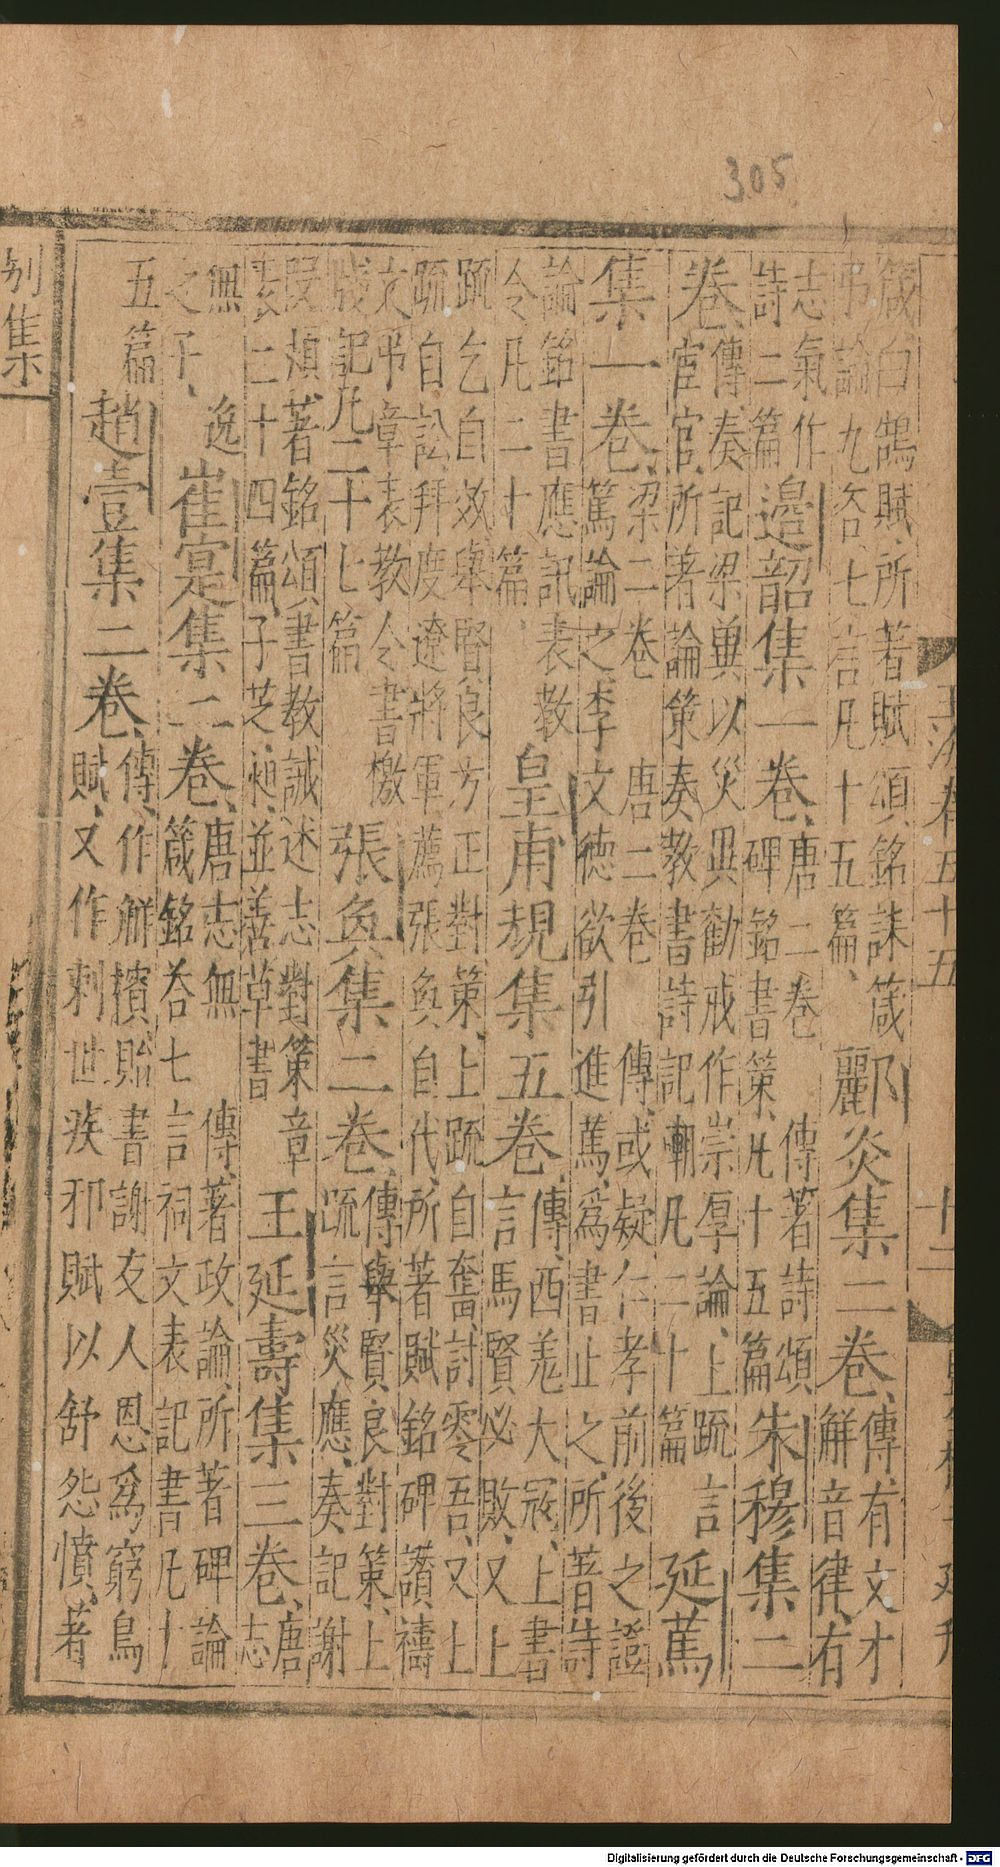 305
别集
玉海卷五十五
十二
箴白鵠賦所著賦頌銘誄箴
弔論九咨七言凡十五篇
酈炎集二卷
傳有文才
解音律有
志氣作
詩二篇
邊韶集一卷
唐二卷
碑銘書策凡十五篇
傳著詩頌
朱穆集二
卷
傳奏記梁冀以災異勸戒作崇厚論上疏言
宦官所著論策奏教書詩記嘲凡二十篇
延篤
集一卷
梁二卷 唐二卷 傳或疑仁孝前後之證
篤論之李文德欲引進篤爲書止之所著詩
論銘書應訊表教
令凡二十篇
皇甫規集五卷
傳西羌大寇上書
言馬賢必敗又上
疏乞自效舉賢良方正對策上疏自奮討零吾又上
疏自訟拜度遼將軍薦張奐自代所著賦銘碑讚禱
文弔章表教令書檄
牋記凡二十七篇
張奐集二卷
傳舉賢良對策上
疏言災應奏記謝
段熲著銘頌書教誡述志對策章
表二十四篇子芝昶並善草書
王延壽集三卷
唐
志
無
之子
逸
崔寔集二卷
唐志無 傳著政論所著碑論
箴銘荅七言祠文表記書凡十
五篇
趙壹集二卷
傳作解擯貽書謝友人恩爲窮鳥
賦又作刺世疾邪賦以舒怨憤著
Digitalisierung gefördert durch die Deutsche Forschungsgemeinschaft - DFG